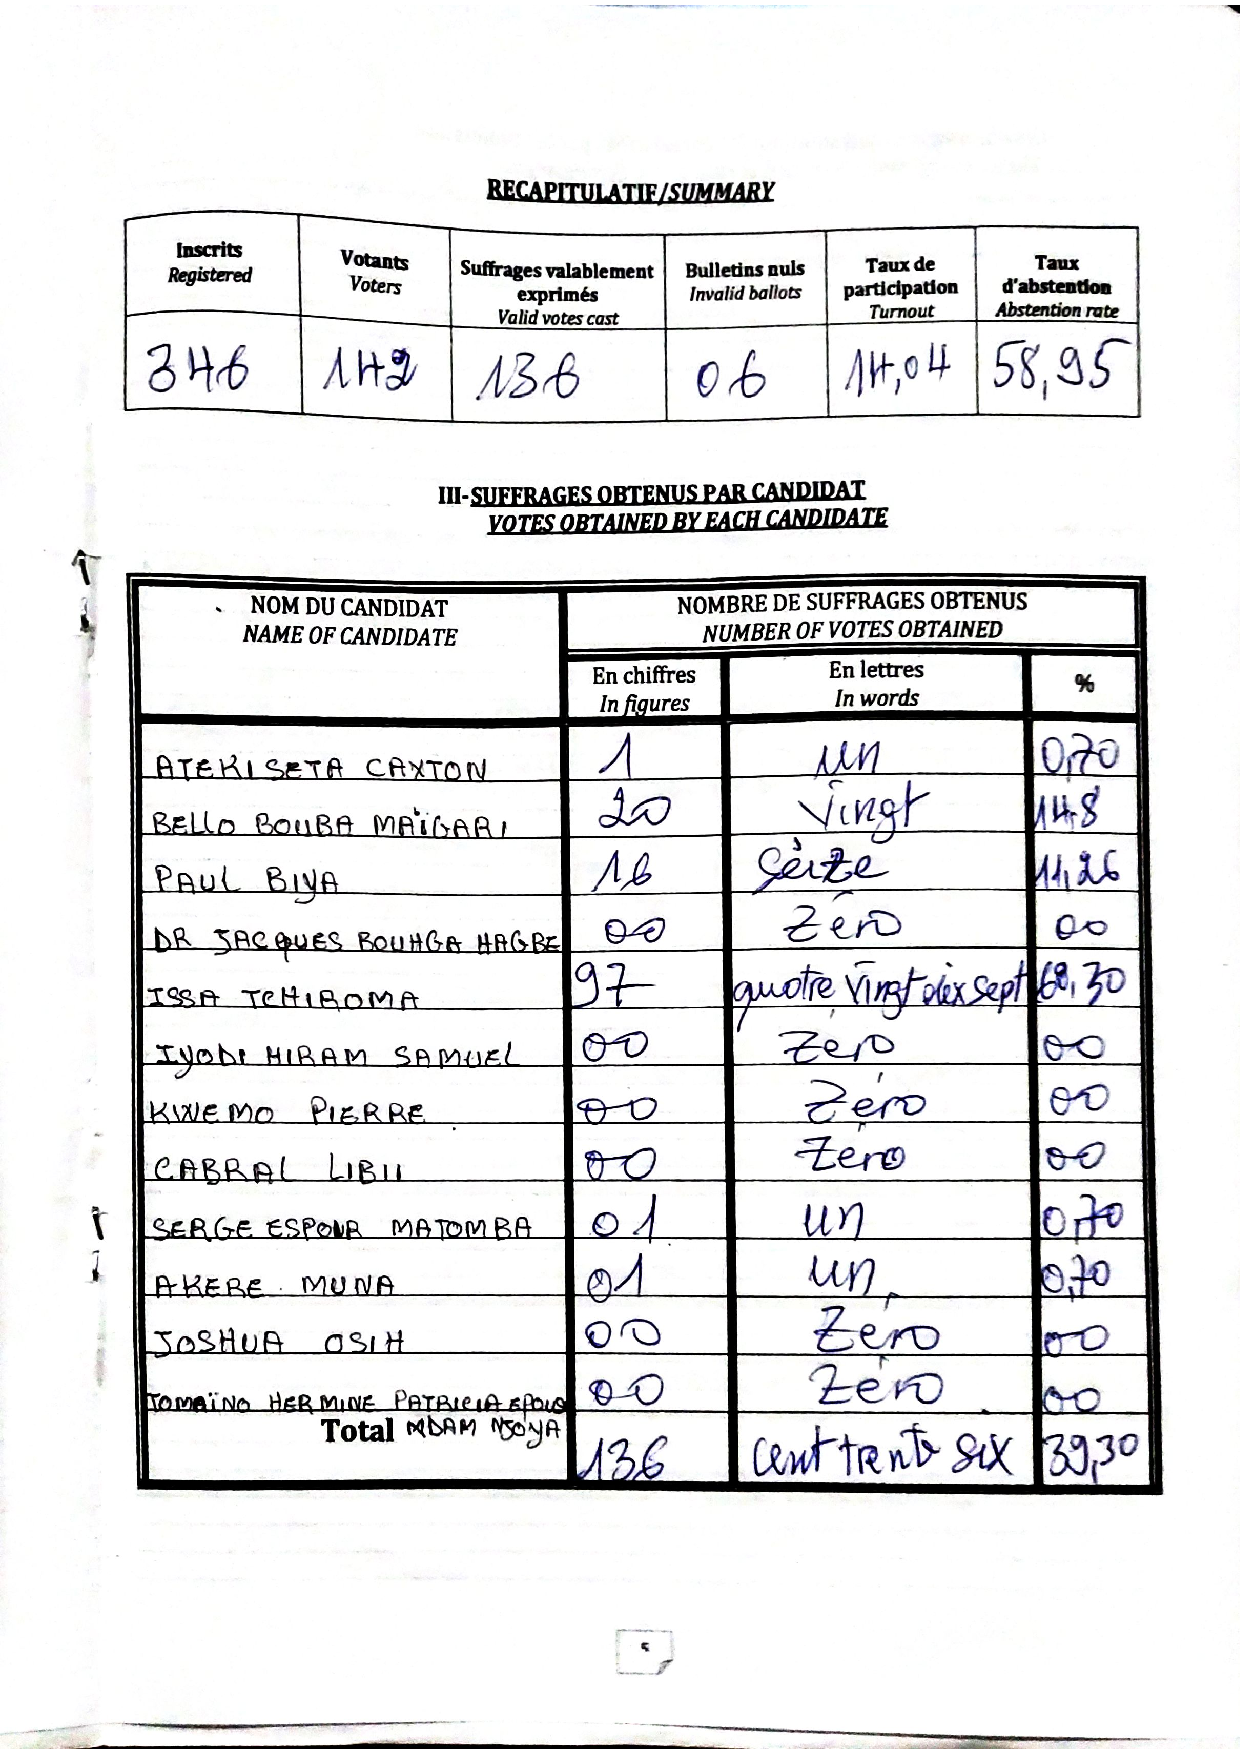 RECAPITULATIF/SUMMARY
Inscrits Registered
Votants Voters
Suffrages valablement exprimés Valid votes cast
Bulletins nuls Invalid ballots
Taux de participation Turnout
Taux d'abstention Abstention rate
346 142 136 06 14,04 58,95
III-SUFFRAGES OBTENUS PAR CANDIDAT
VOTES OBTAINED BY EACH CANDIDATE
NOM DU CANDIDAT
NAME OF CANDIDATE
NOMBRE DE SUFFRAGES OBTENUS
NUMBER OF VOTES OBTAINED
En chiffres In figures
En lettres In words
%
ATEKI SETA CAXTON 1 un 0,70
BELLO BOUBA MAÏGARI 20 Vingt 14,8
PAUL BIYA 16 Séize 11,26
DR JACQUES BOUHGA HAGBE 00 Zéro 00
ISSA TCHIROMA 97 quatre Vingt dix sept 68,30
IYODI HIRAM SAMUEL 00 Zéro 00
KWEMO PIERRE 00 Zéro 00
CABRAL LIBII 00 Zéro 00
SERGE ESPOUR MATOMBA 01 un 0,70
AKERE MUNA 01 un 0,70
JOSHUA OSIH 00 Zéro 00
TOMAÏNO HERMINE PATRICIA EPOUS 00 Zéro 00
Total NDAM NJOYA 136 cent trente six 39,30
5